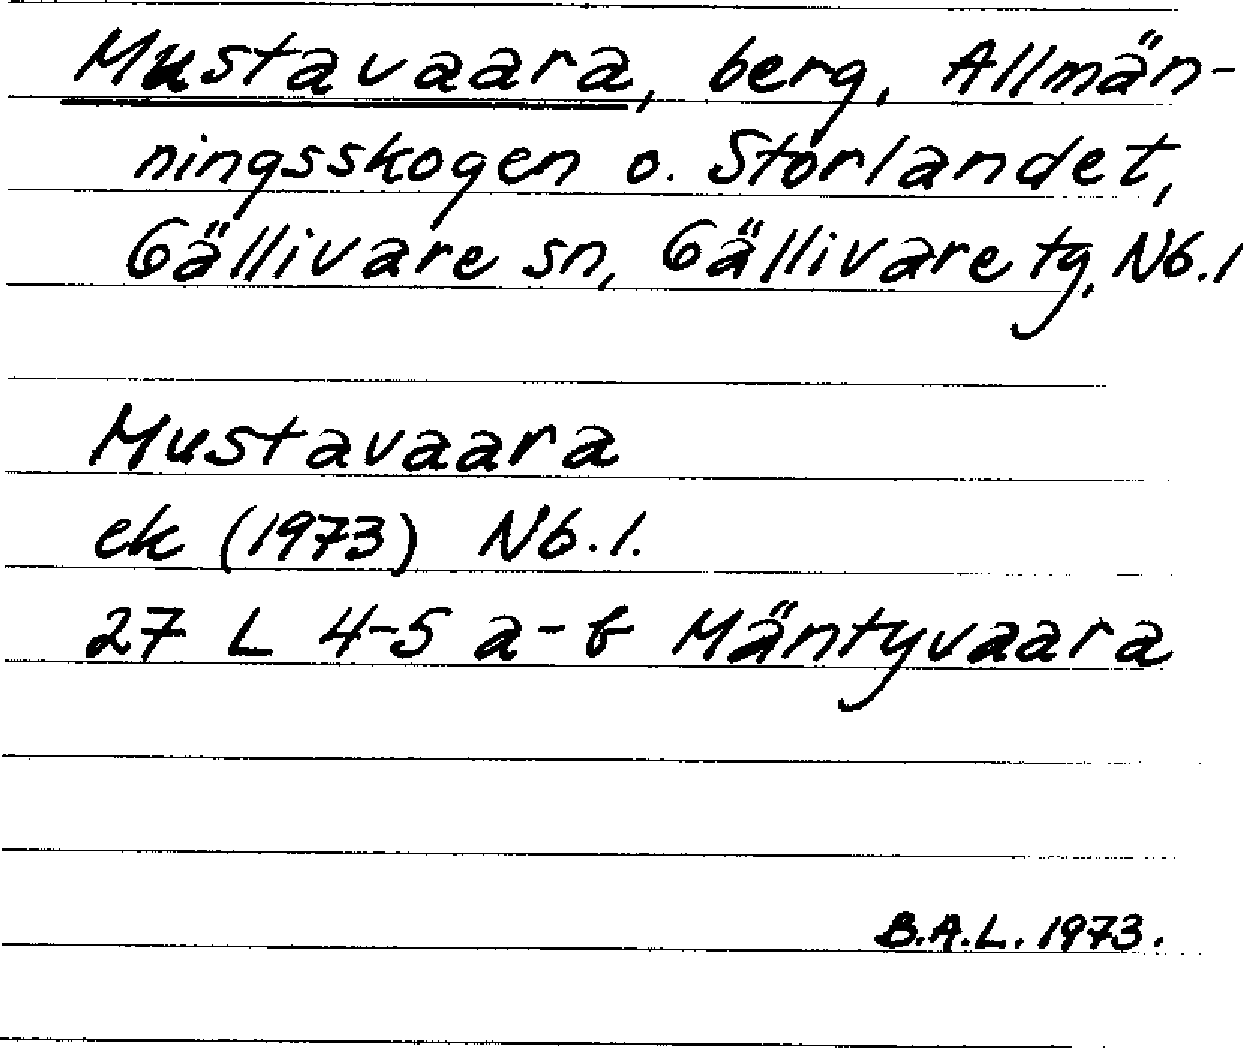 Mustavaara, berg, Allmän-
ningsskogen o. Storlandet,
Gällivare sn, Gällivare tg, Nb.l
Mustavaara
ek (1973) Nb.l.
27 L 4-5 a-b Mäntyvaara
B.A.L. 1973.